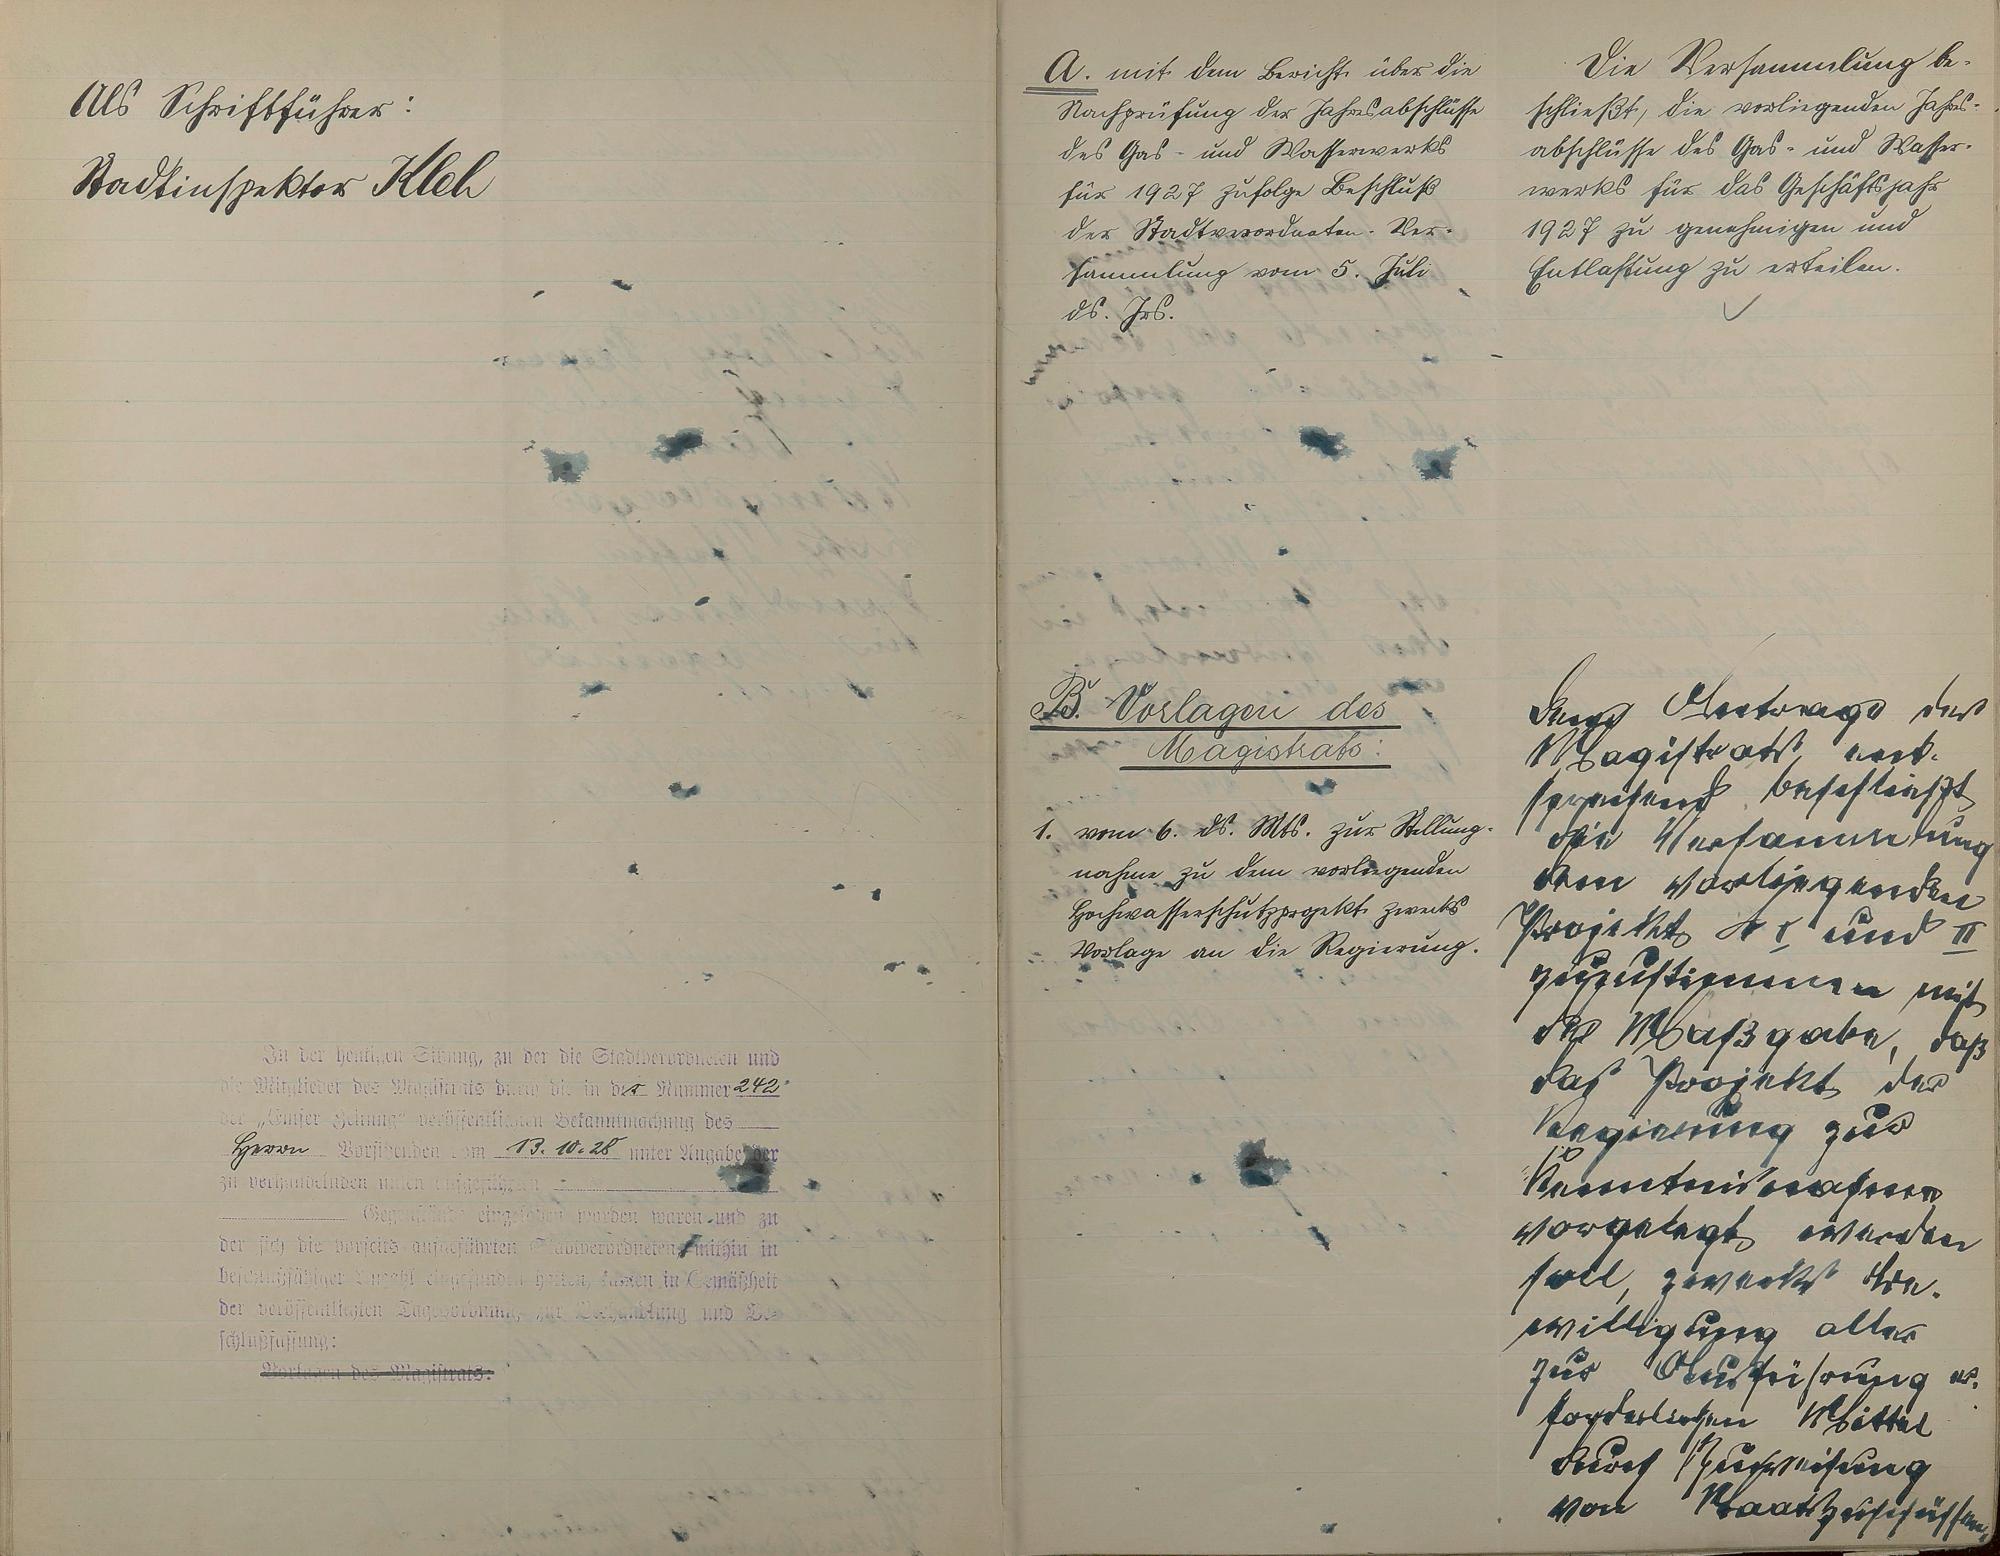 Als Schriftführer:
Stadtinspektor Kleh
In der heutigen Sitzung, zu der die Stadtverordneten und
die Mitglieder des Magistrats durch die in der Nummer 242
der „Emser Zeitung“ veröffentlichten Bekanntmachung des
Herrn Vorsitzenden vom 13. 10. 28 unter Angabe der
zu verhandelnden unten aufgeführten
Gegenstände eingeladen worden waren und zu
der sich die vorseits aufgeführten Stadtverordneten, mithin in
beschlußfähiger Anzahl eingefunden hatten, kamen in Gemäßheit
der veröffentlichten Tagesordnung, zur Verhandlung und Be-
schlußfassung:
Vorlagen des Magistrats:
A. mit dem Bericht über die
Nachprüfung der Jahresabschlüsse
des Gas- und Wasserwerks
für 1927 zufolge Beschluß
der Stadtverordneten-Ver-
sammlung vom 5. Juli
ds. Jrs.
Die Versammlung be-
schließt, die vorliegenden Jahres-
abschlüsse des Gas- und Wasser-
werks für das Geschäftsjahr
1927 zu genehmigen und
Entlastung zu erteilen.
B. Vorlagen des
Magistrats:
1. vom 6. ds. Mts. zur Stellung-
nahme zu dem vorliegenden
Hochwasserschutzprojekt zwecks
Vorlage an die Regierung.
Dem Antrage des
Magistrats ent-
sprechend beschließt
die Versammlung
dem vorliegenden
Projekt I und II
zuzustimmen mit
der Maßgabe, daß
das Projekt der
Regierung zur
Kenntnisnahme
vorgelegt werden
soll, zwecks Be-
willigung aller
zur Ausführung er-
forderlichen Mittel
durch Zuweisung
von Staatszuschüssen,